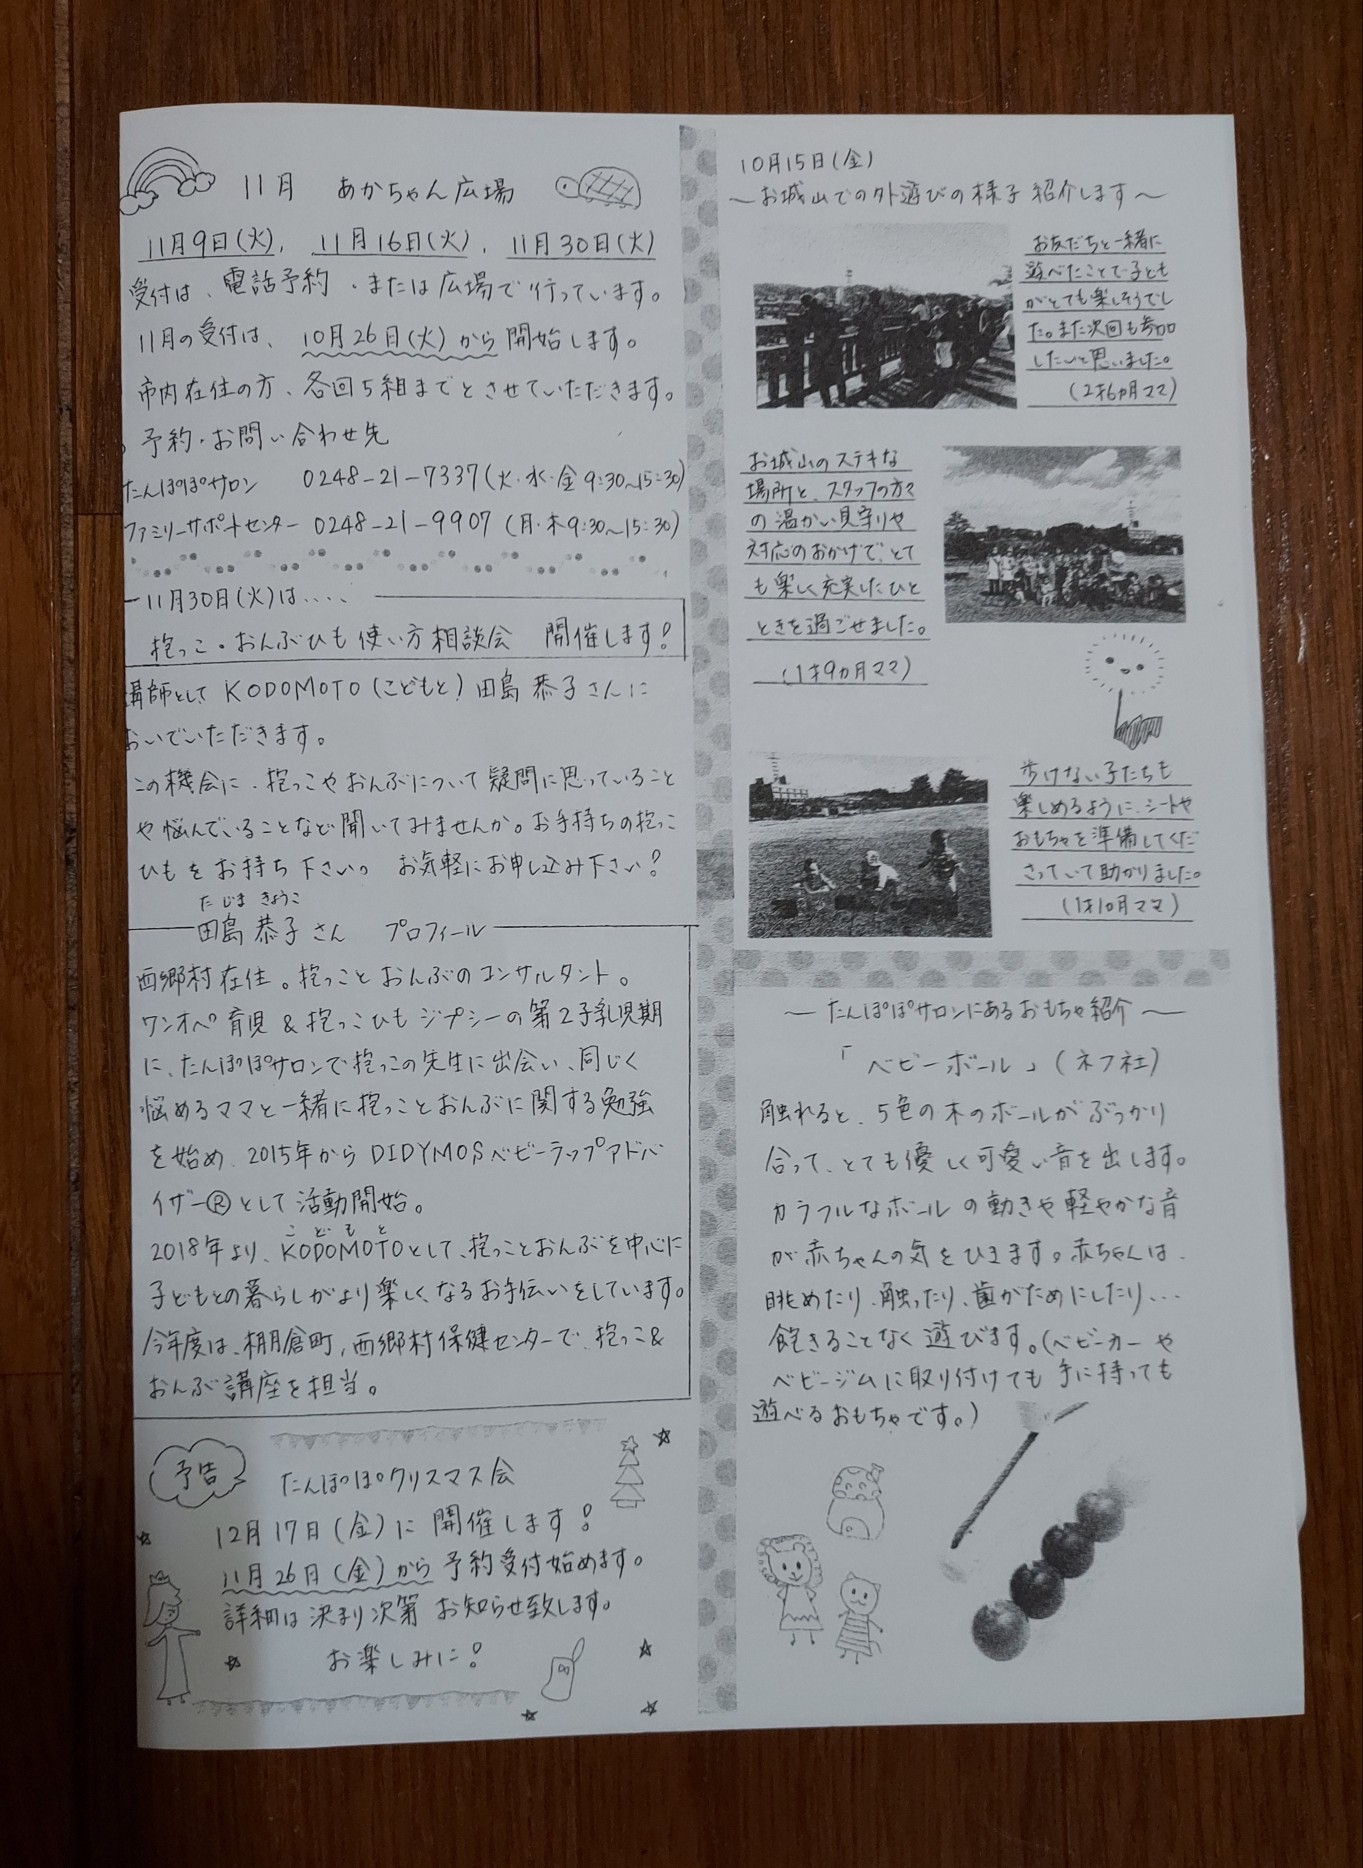 11月 あかちゃん広場
11月9日(火)、11月16日(火)、11月30日(火)
受付は、電話予約、または広場で行っています。
11月の受付は、10月26日(火)から開始します。
市内在住の方、各回5組までとさせていただきます。
予約・お問い合わせ先
たんぽぽサロン 0248-21-7337(火・水・金 9:30~15:30)
ファミリーサポートセンター 0248-21-9907(月・木9:30~15:30)
11月30日(火)は‥‥
抱っこ・おんぶひも使い方相談会 開催します!
講師として KODOMOTO(こどもと)田島恭子さんに
おいでいただきます。
この機会に、抱っこやおんぶについて疑問に思っていること
や悩んでいることなど聞いてみませんか。お手持ちの抱っこ
ひもをお持ち下さい。 お気軽にお申し込み下さい!
たじま きょうこ
田島恭子さん プロフィール
西郷村在住。抱っことおんぶのコンサルタント。
ワンオペ育児&抱っこひもジプシーの第2子乳児期
に、たんぽぽサロンで抱っこの先生に出会い、同じく
悩めるママと一緒に抱っことおんぶに関する勉強
を始め、2015年からDIDYMOSベビーラップアドバ
イザー®として活動開始。
こどもと
2018年より、KODOMOTOとして、抱っことおんぶを中心に
子どもとの暮らしがより楽しくなるお手伝いをしています。
今年度は、棚倉町,西郷村保健センターで、抱っこ&
おんぶ講座を担当。
予告
たんぽぽクリスマス会
12月17日(金)に開催します!
11月26日(金)から予約受付始めます。
詳細は決まり次第お知らせ致します。
お楽しみに!
10月15日(金)
~お城山での外遊びの様子紹介します~
お友だちと一緒に
遊べたことで子ども
がとても楽しそうでし
た。また次回も参加
したいと思いました。
(2才6ヵ月ママ)
お城山のステキな
場所と、スタッフの方々
の温かい見守りや
対応のおかげで、とて
も楽しく充実したひと
ときを過ごせました。
(1才9ヵ月ママ)
歩けない子たちも
楽しめるように、シートや
おもちゃを準備してくだ
さっていて助かりました。
(1才10月ママ)
~たんぽぽサロンにあるおもちゃ紹介~
「ベビーボール」(ネフ社)
触れると、5色の木のボールがぶつかり
合って、とても優しく可愛い音を出します。
カラフルなボールの動きや軽やかな音
が赤ちゃんの気をひきます。赤ちゃんは、
眺めたり、触ったり、歯がためにしたり、‥
飽きることなく遊びます。(ベビーカーや
ベビージムに取り付けても手に持っても
遊べるおもちゃです。)